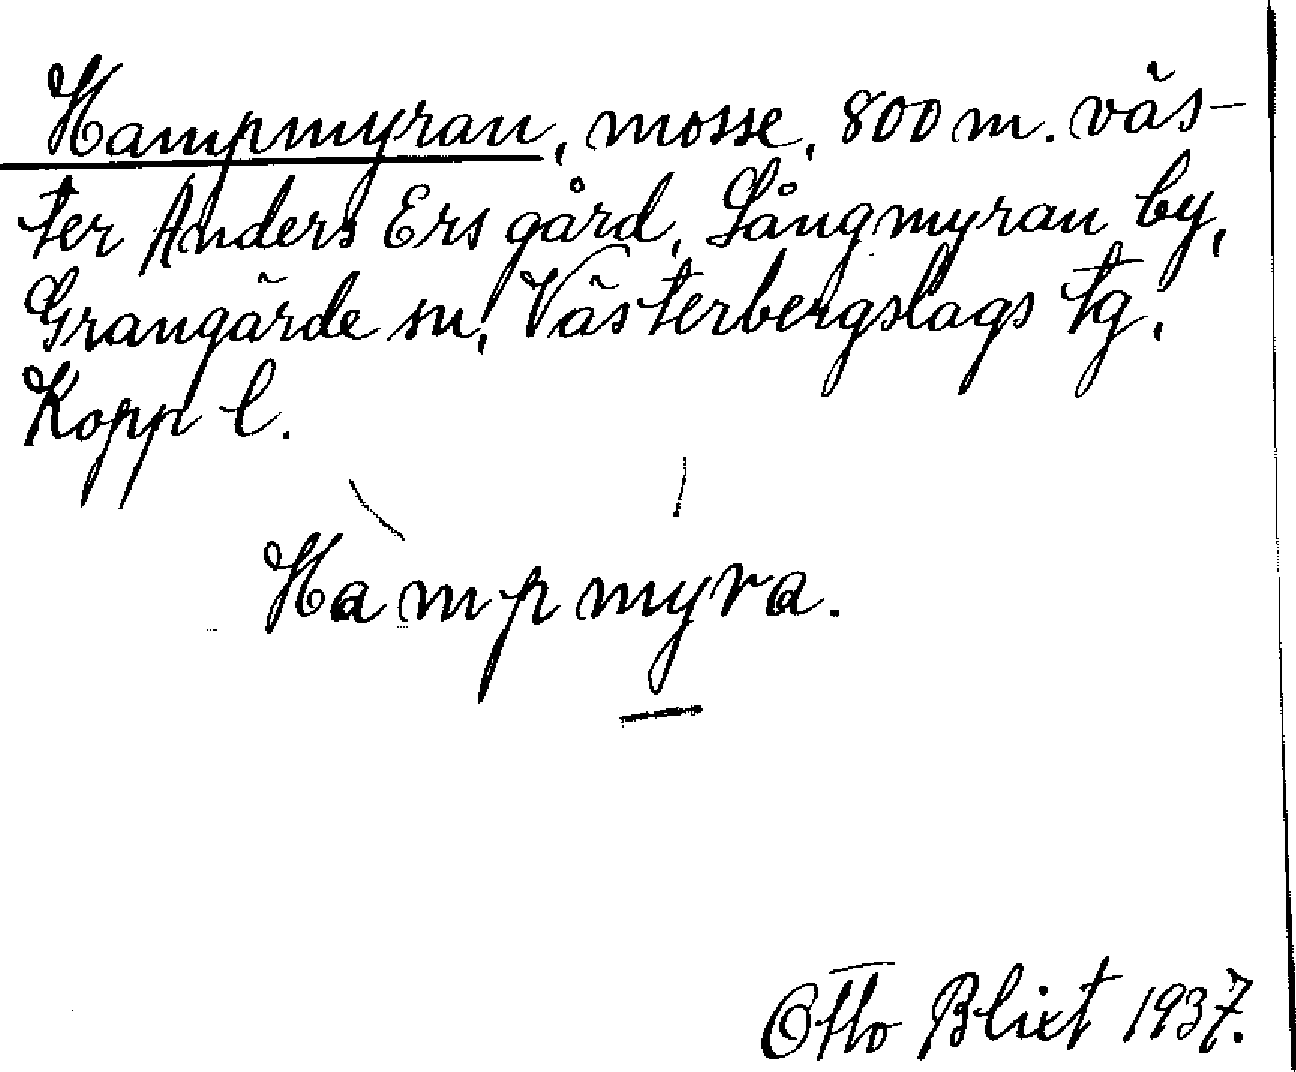 Hampmyran, mosse, 800 m. väs-
ter Anders Ers gård, Långmyran by,
Grangärde sn, Västerbergslags tg.
Kopp l.
Hàmpmyra.
Otto Blixt 1937.